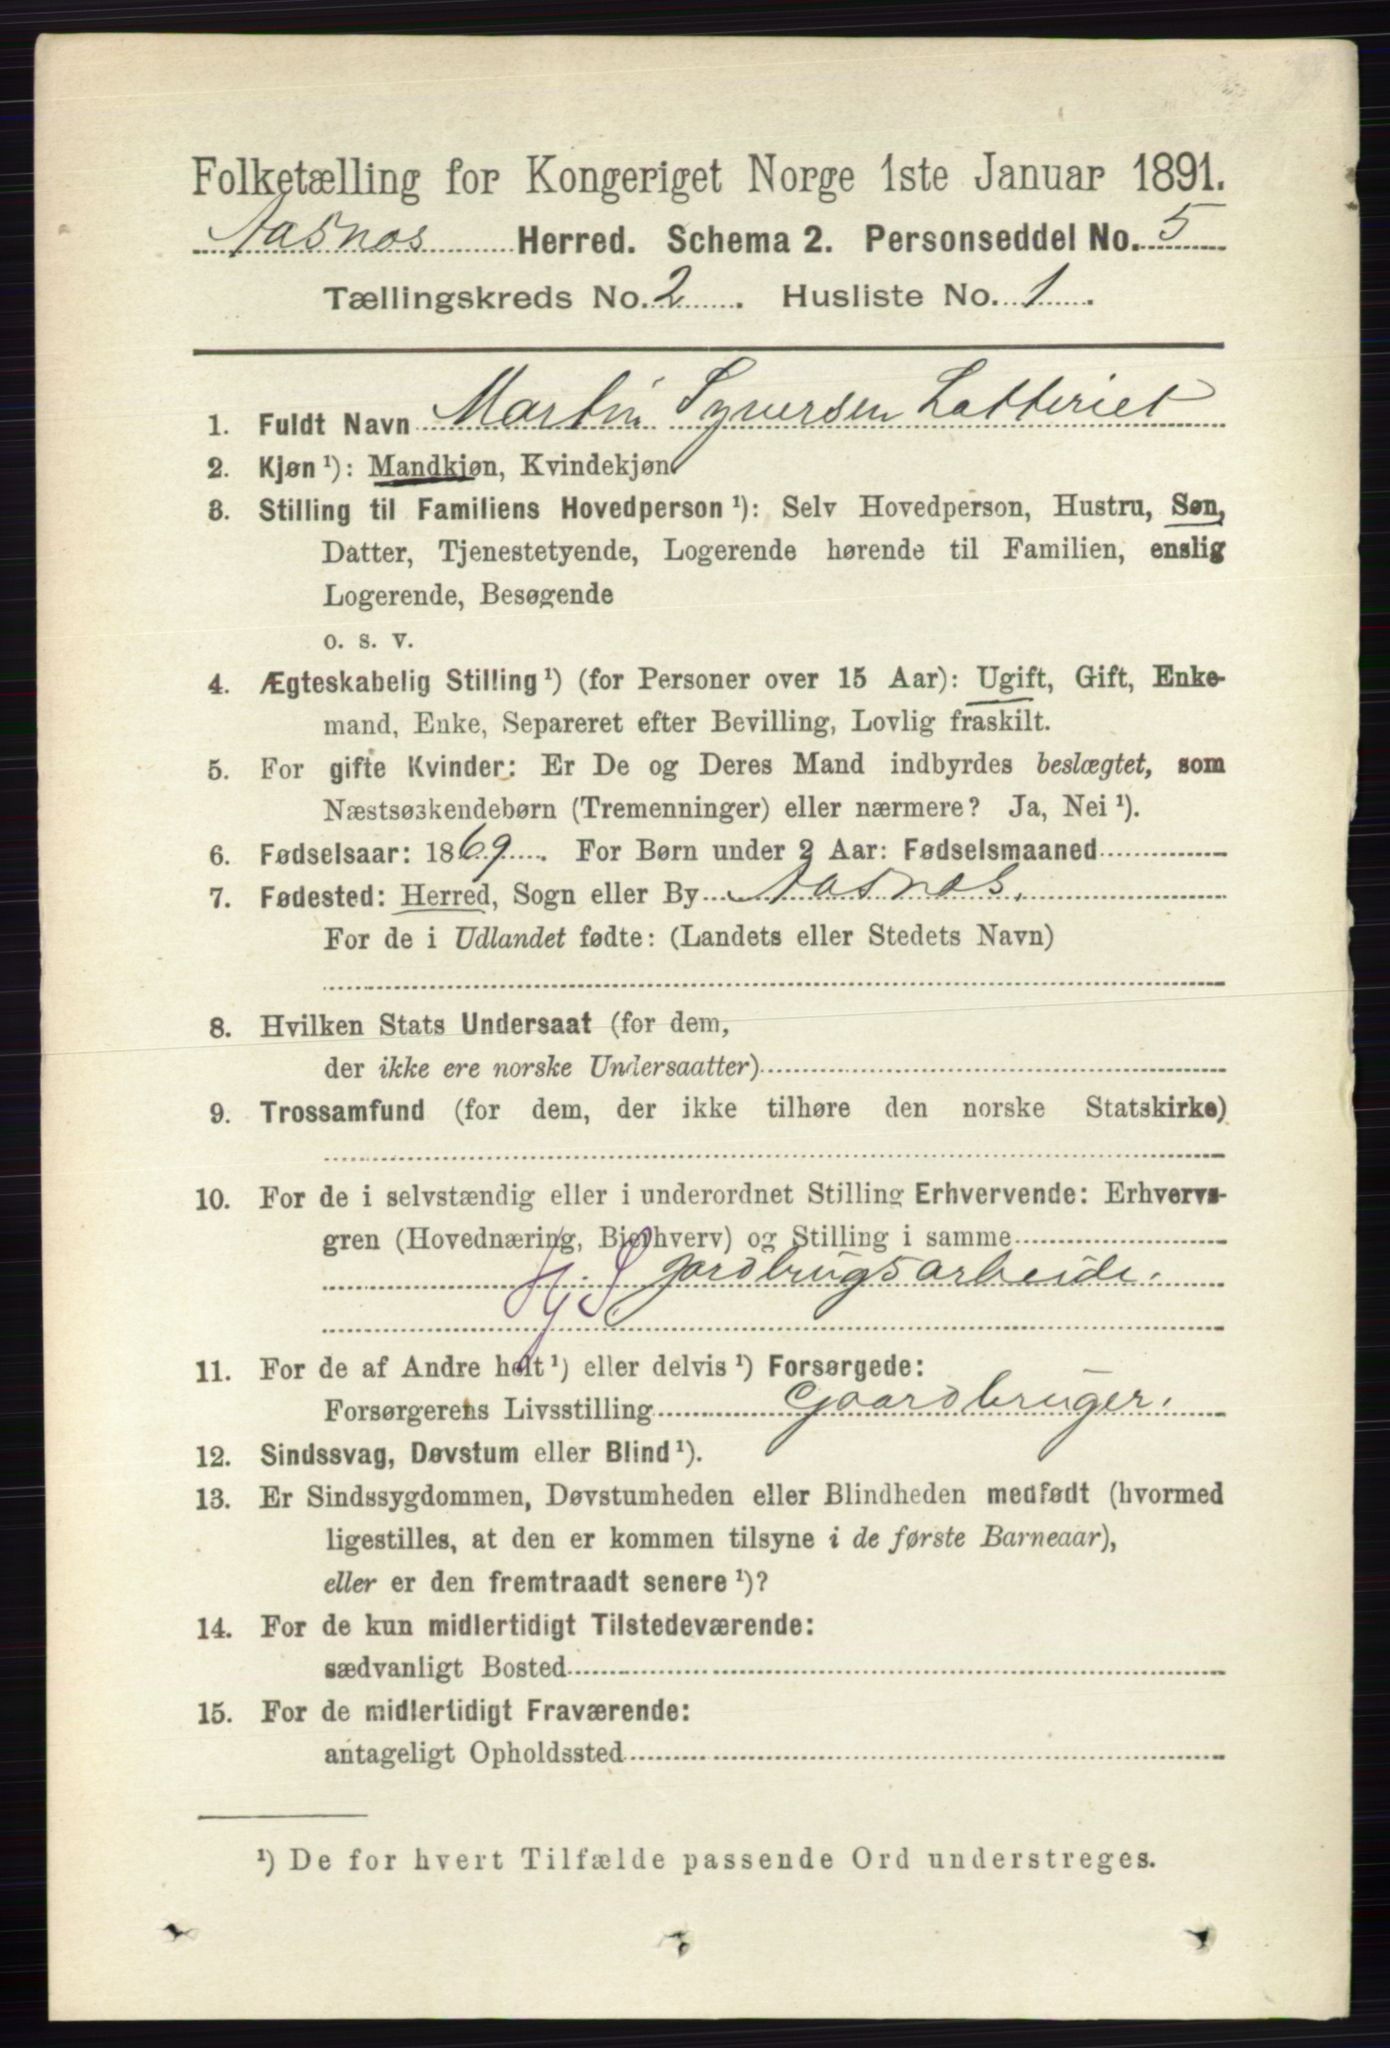 Folketælling for Kongeriget Norge 1ste Januar 1891.
Aasnes Herred. Schema 2. Personseddel No. 5
Tællingskreds No. 2. Husliste No. 1.
1. Fuldt Navn Martin Syversen Latteriet
2. Kjøn ¹): Mandkjøn, Kvindekjøn
3. Stilling til Familiens Hovedperson ¹): Selv Hovedperson, Hustru, Søn,
Datter, Tjenestetyende, Logerende hørende til Familien, enslig
Logerende, Besøgende
o. s. v.
4. Ægteskabelig Stilling ¹) (for Personer over 15 Aar): Ugift, Gift, Enke-
mand, Enke, Separeret efter Bevilling, Lovlig fraskilt.
5. For gifte Kvinder: Er De og Deres Mand indbyrdes beslægtet, som
Næstsøskendebørn (Tremenninger) eller nærmere? Ja, Nei ¹).
6. Fødselsaar: 1869. For Børn under 2 Aar: Fødselsmaaned
7. Fødested: Herred, Sogn eller By Aasnes.
For de i Udlandet fødte: (Landets eller Stedets Navn)
8. Hvilken Stats Undersaat (for dem,
der ikke ere norske Undersaatter)
9. Trossamfund (for dem, der ikke tilhøre den norske Statskirke)
10. For de i selvstændig eller i underordnet Stilling Erhvervende: Erhvervs-
gren (Hovednæring, Bierhverv) og Stilling i samme
gardbrugsarbeide.
11. For de af Andre helt ¹) eller delvis ¹) Forsørgede:
Forsørgerens Livsstilling Gaardbruger.
12. Sindssvag, Døvstum eller Blind ¹).
13. Er Sindssygdommen, Døvstumheden eller Blindheden medfødt (hvormed
ligestilles, at den er kommen tilsyne i de første Barneaar),
eller er den fremtraadt senere ¹)?
14. For de kun midlertidigt Tilstedeværende:
sædvanligt Bosted
15. For de midlertidigt Fraværende:
antageligt Opholdssted
¹) De for hvert Tilfælde passende Ord understreges.